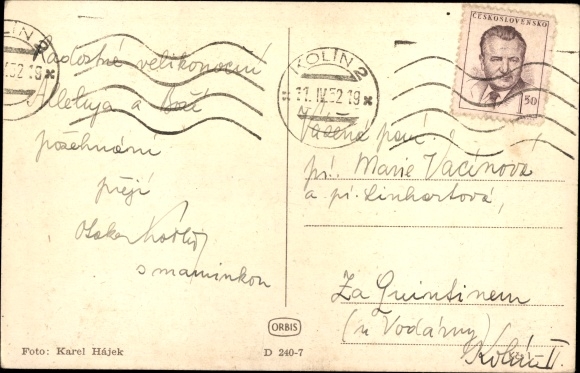 Radostné velikonoční
Alleluja a Boží
požehnání
přejí
Otakar
s maminkou
Foto: Karel Hájek
ORBIS
D 240-7
KOLÍN 2
.IV.52 19
KOLÍN 2
11.IV.52 19
ČESKOSLOVENSKO
50
Vážená paní
pí. Marie Vacínová
a pí. Linhartová,
Za Quintinem
(u Vodárny)
Kolín II.